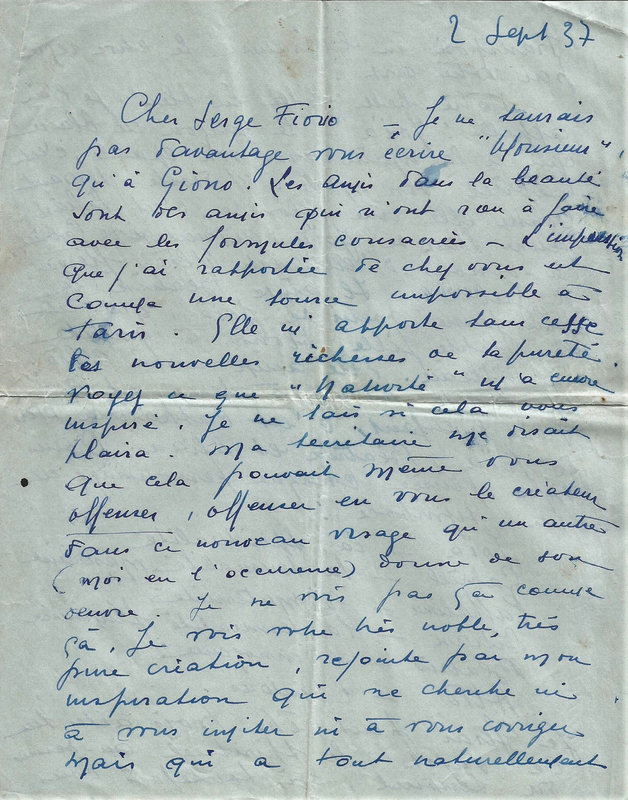 2 Sept 37
Cher Serge Fiorio – Je ne saurais
pas davantage vous écrire "Monsieur",
qu'à Giono. Les amis dans la beauté
sont des amis qui n'ont rien à faire
avec les formules consacrées – L'impression
que j'ai rapportée de chez vous est
comme une source impossible à
tarir. Elle m'apporte sans cesse
des nouvelles richesses de sa pureté.
Voyez ce que "Nativité" m'a encore
inspiré. Je ne sais si cela vous
plaira. Ma secrétaire me disait
que cela pouvait même vous
offenser, offenser en vous le créateur
dans ce nouveau visage qu'un autre
(moi en l'occurrence) donne de son
oeuvre. Je ne vois pas ça comme
ça. Je vois votre très noble, très
pure création, rejointe par mon
inspiration qui ne cherche ni
à vous imiter ni à vous corriger
mais qui a tout naturellement